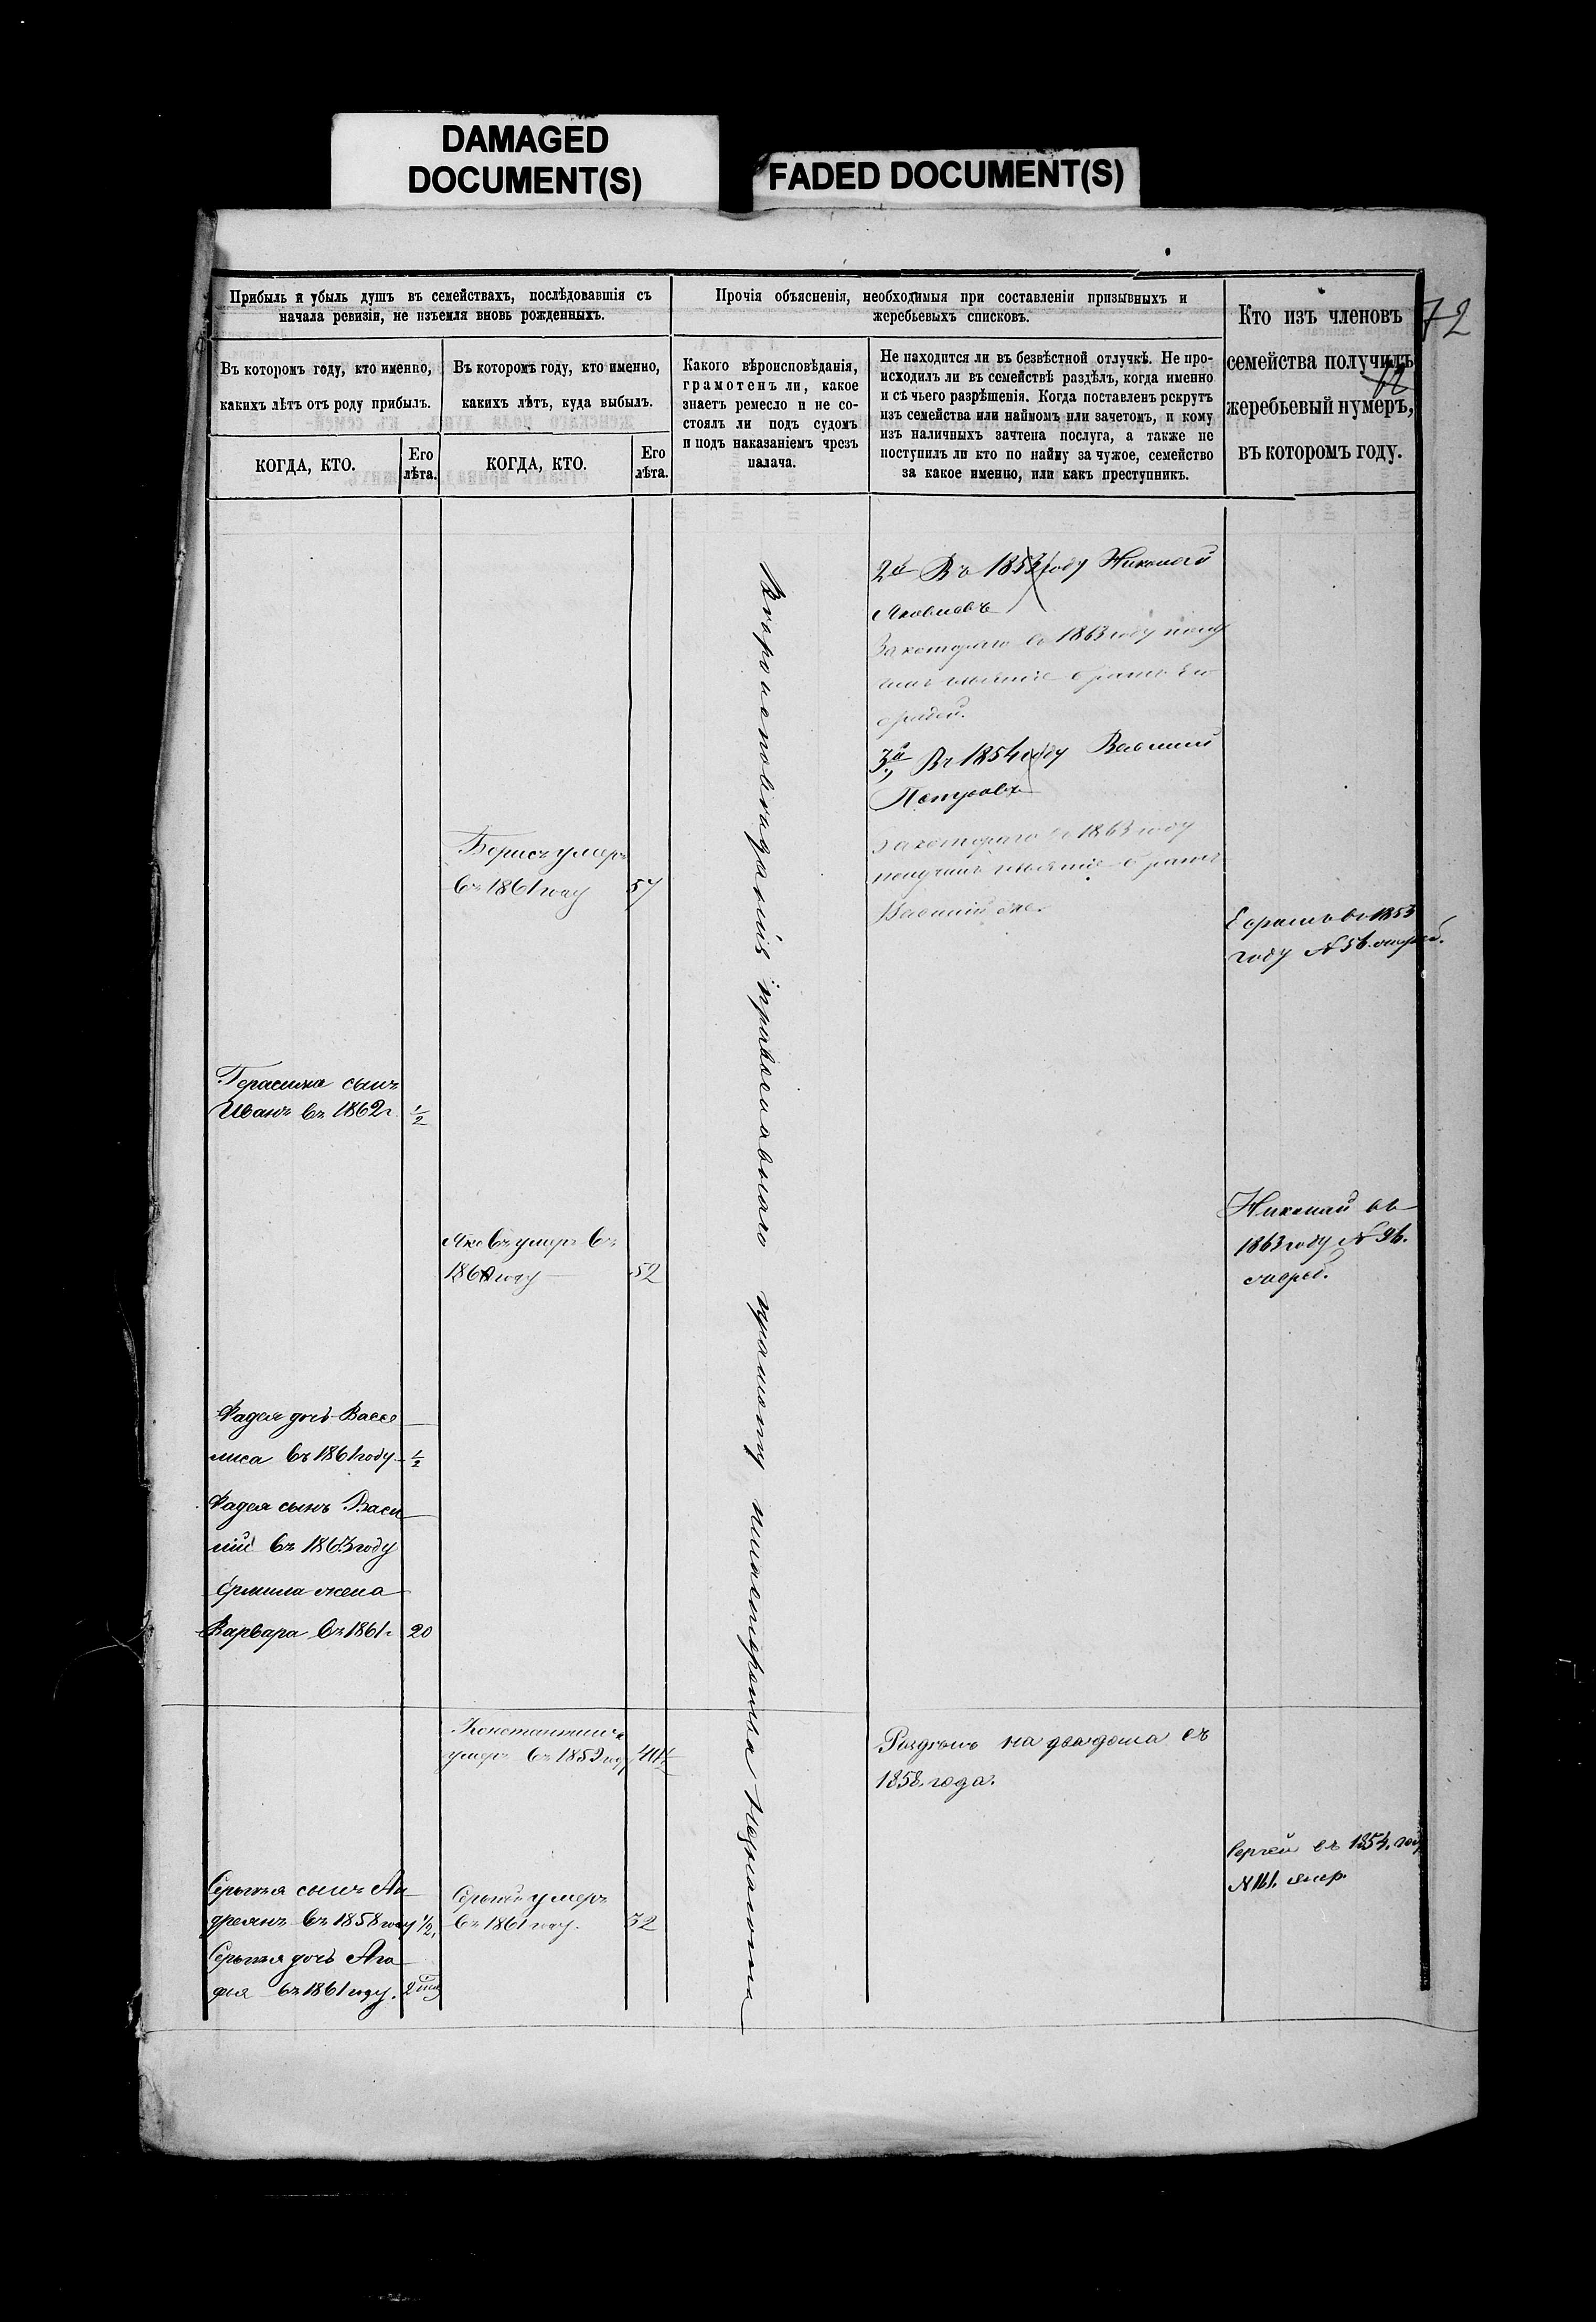 DAMAGED
DOCUMENT(S)
FADED DOCUMENT(S)
72
Прибыль и убыль душъ въ семействахъ, послѣдовавшія съ
начала ревизіи, не изъемля вновь рожденныхъ.
Въ которомъ году, кто именно,
какихъ лѣтъ отъ роду прибылъ.
КОГДА, КТО.
Его
лѣта.
Въ которомъ году, кто именно,
какихъ лѣтъ, куда выбылъ.
КОГДА, КТО.
Его
лѣта.
Прочія объясненія, необходимыя при составленіи призывныхъ и
жеребьевыхъ списковъ.
Какого вѣроисповѣданія,
грамотенъ ли, какое
знаетъ ремесло и не со-
стоялъ ли подъ судомъ
и подъ наказаніемъ чрезъ
палача.
Не находится ли въ безвѣстной отлучкѣ. Не про-
исходилъ ли въ семействѣ раздѣлъ, когда именно
и съ чьего разрѣшенія. Когда поставленъ рекрутъ
изъ семейства или наймомъ или зачетомъ, и кому
изъ наличныхъ зачтена послуга, а также не
поступилъ ли кто по найму за чужое, семейство
за какое именно, или какъ преступникъ.
Кто изъ членовъ
семейства получилъ
жеребьевый нумеръ,
въ которомъ году.
Герасима сынъ
Иванъ въ 1862 г. 1/2
Фадея дочь Васе
лиса въ 1861 году 1/2
Фадея сынъ Васи
лій въ 1863 году
Ермила жена
Варвара въ 1861 г 20
Сергѣя сынъ Ан
дреянъ въ 1858 году 1/2
Сергѣя дочь Ага
фья въ 1861 году. 2
Борисъ умеръ
въ 1861 году 57
Яковъ умеръ въ
году 52
Константинъ
умеръ въ 1859 году
Сергѣй умеръ
въ 1861 году. 32
Вѣроисповѣданія православнаго грамоту и мастерства не знаютъ
2й Въ 1853 году Николай
Яковлевъ
За котораго въ 1863 году полу
братъ
3й, Въ 1854 году Василій
Петровъ
За котораго въ 1863 году
получилъ братъ
Василій
Раздѣлъ на два дома съ
1858 года.
въ 1853
году №56.
Николай въ
1863 году № 96.
жереб.
Сергей въ 1854 году
№161. жер.